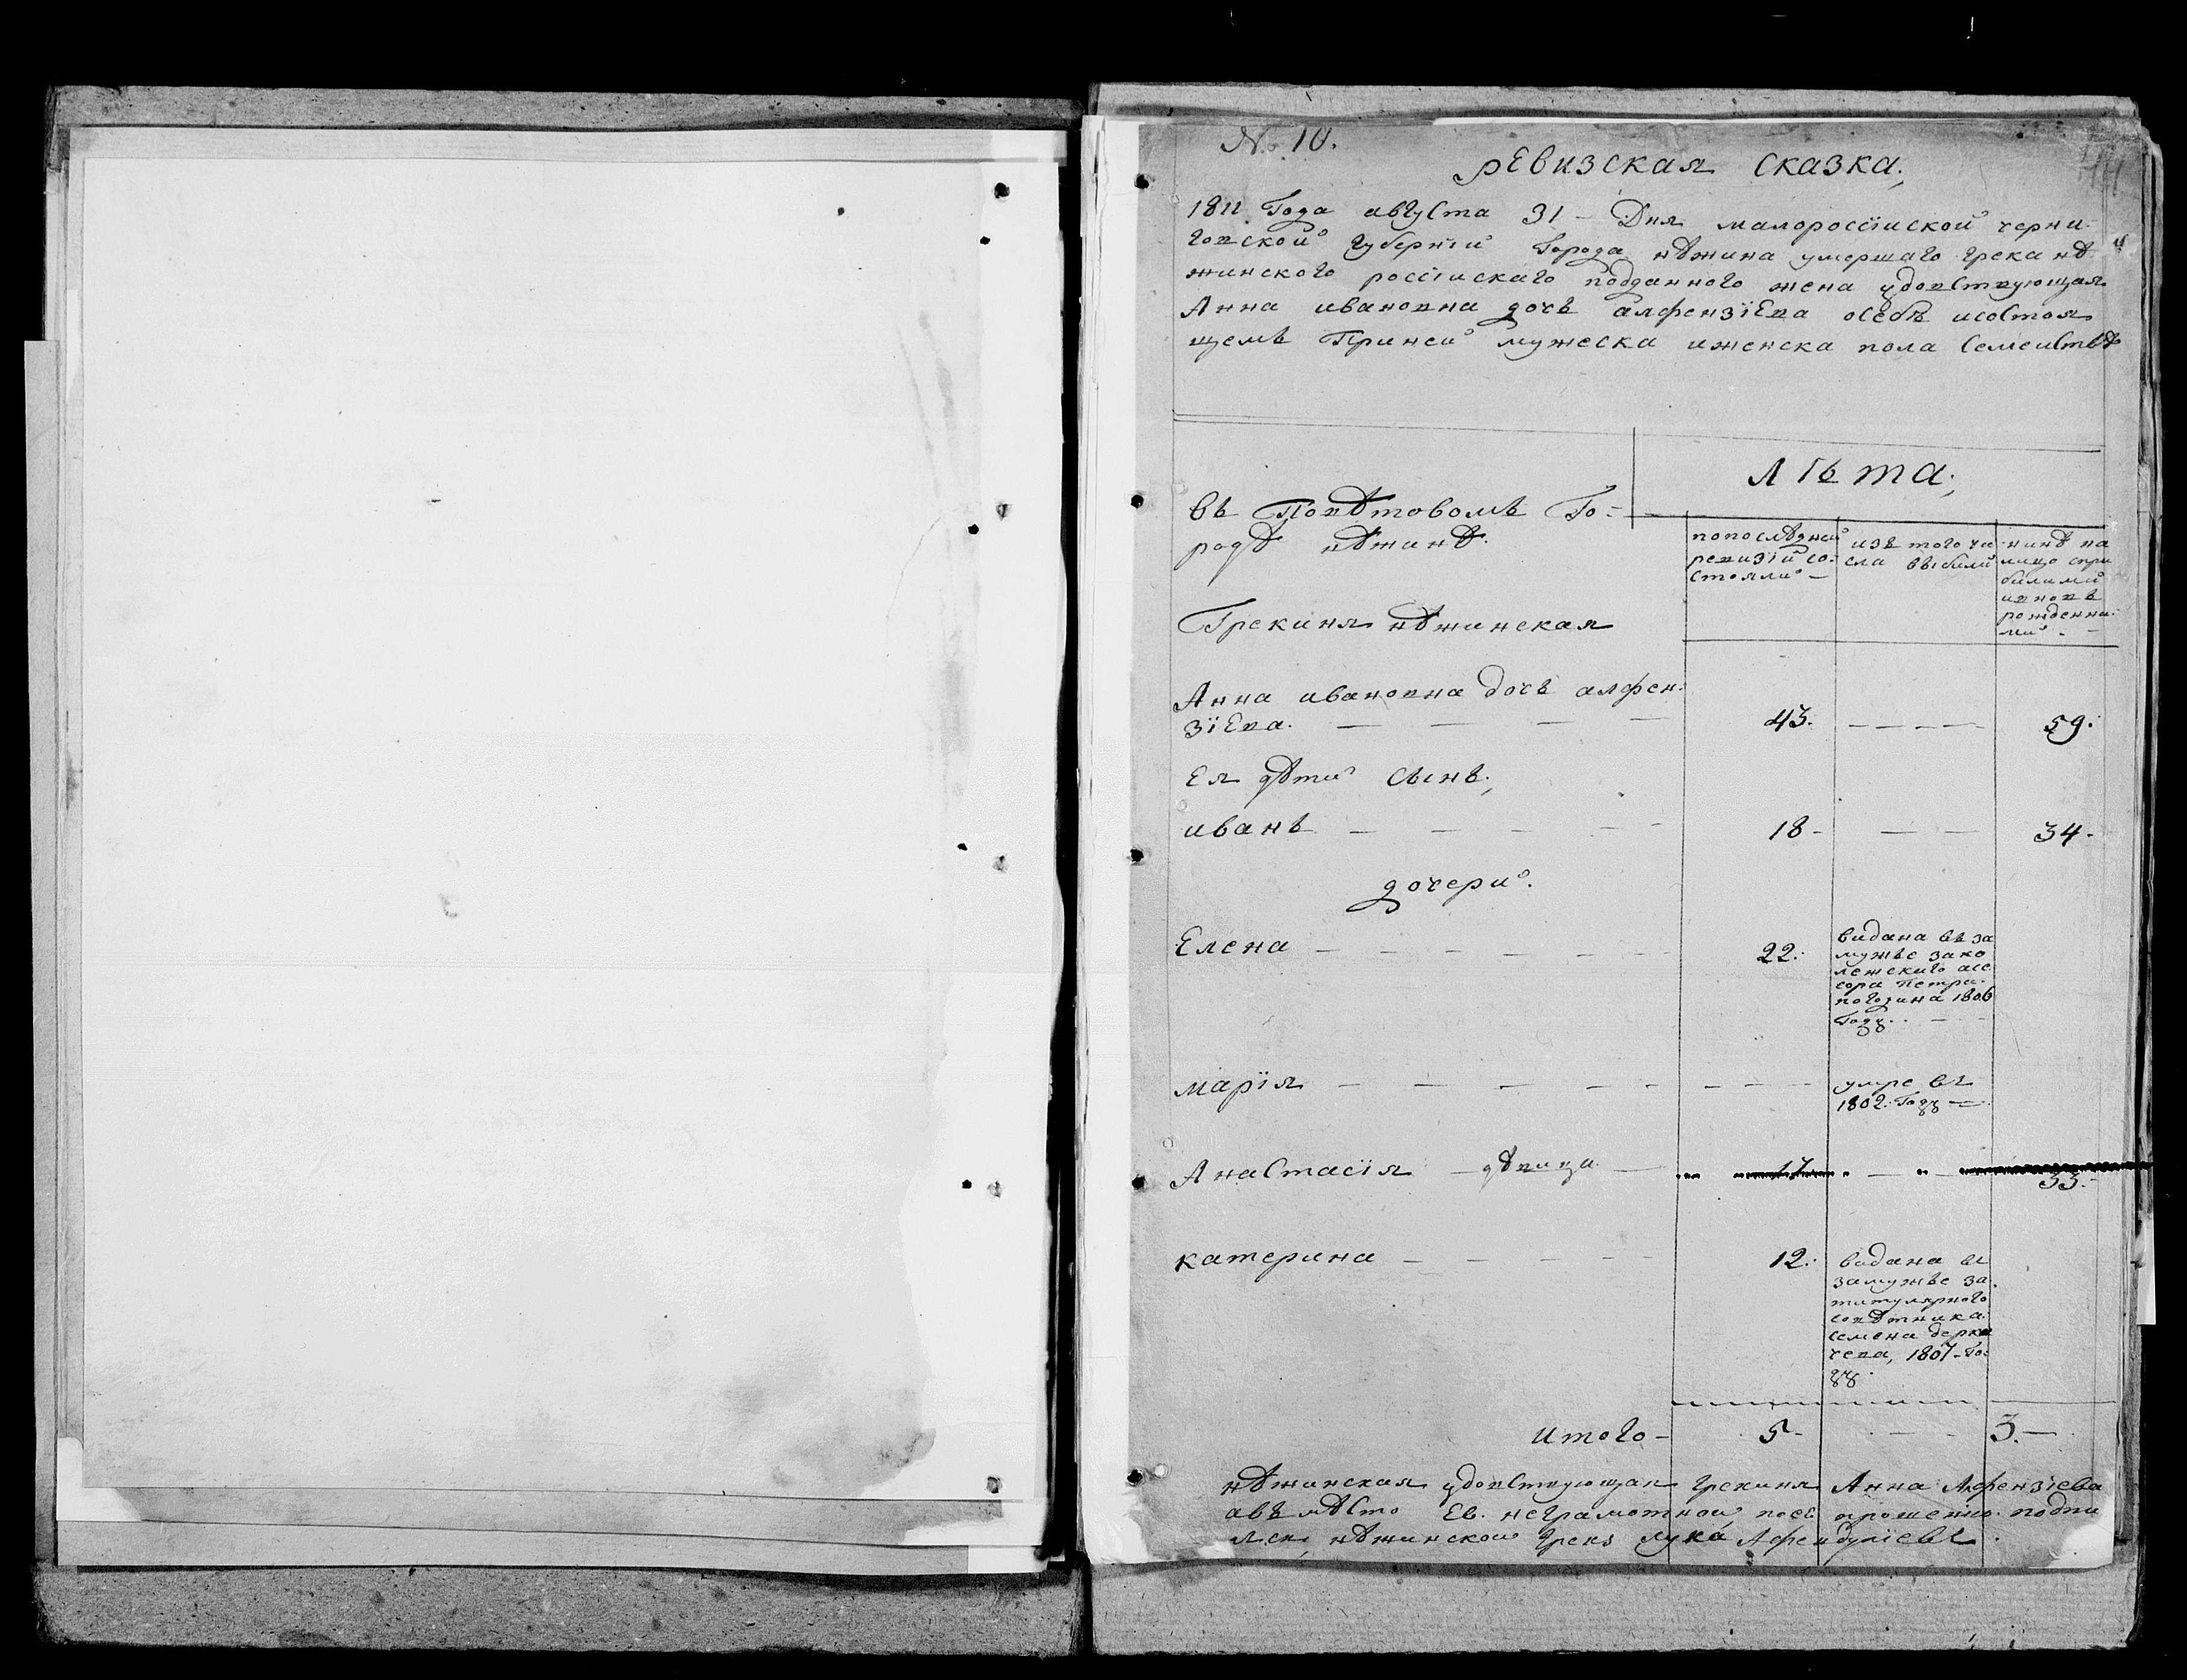 № 10.
ревизская сказка;
1811 Года августа 31 – Дня малороссійской черни-
говской губерніи Города нѣжина умершаго грека нѣ-
жинского россійскаго подданного жена удовствующая
Анна ивановна дочь алфензіева осебѣ исостоя
щемъ Принеи мужеска иженска пола семействѣ
Въ Повѣтовомъ Го-
родѣ нѣжинѣ.
ЛѢта;
попослѣдней
ревизіи со-
стояли –
изъ того чи
сла выбили
нинѣ на
лицо спри
билими
ивновъ
рожденни-
ми
Грекиня нѣжинская
Анна ивановна дочь алфен-
зіева. 43. 59.
Ея дѣти сынъ;
иванъ 18 34.
дочери.
Елена 22.
видана въ за
мужье зако
лежского асе
сора петра
погозина 1806
Году
марія
умре въ
1802. Году
Анастасія – дѣвица 17 33.
катерина 12.
видана въ
замужье за
титулярного
совѣтника
семена дерка
чева, 1807 Го-
ду
итого – 5 – 3. –
нѣжинская удовствующая грекиня Анна Алфензіева
авъмѣсто Ев. неграмотной поеѣ прошению подпи
лся нѣжинской грекъ лука Афендуліевъ